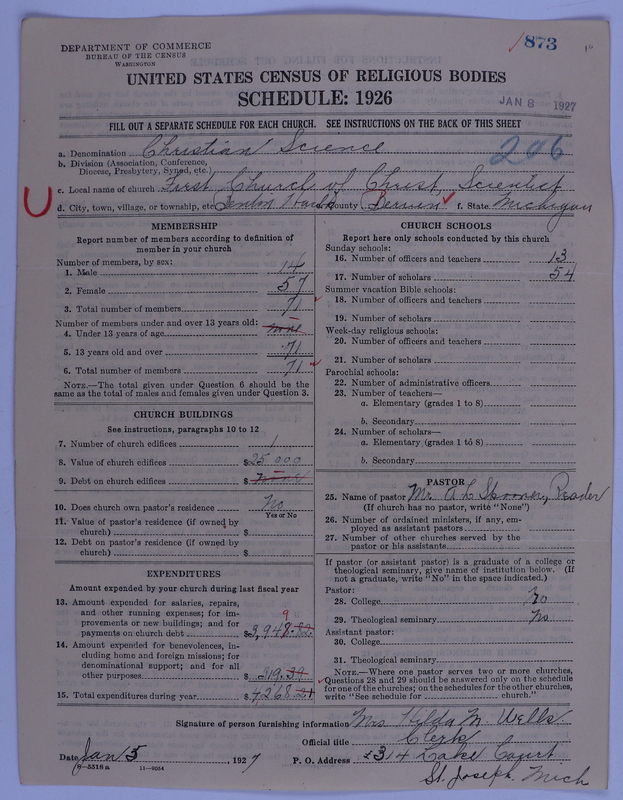 DEPARTMENT OF COMMERCE
BUREAU OF THE CENSUS
WASHINGTON
873
UNITED STATES CENSUS OF RELIGIOUS BODIES
SCHEDULE: 1926
JAN 8 1927
FILL OUT A SEPARATE SCHEDULE FOR EACH CHURCH. SEE INSTRUCTIONS ON THE BACK OF THIS SHEET
a. Denomination Christian Science 206
b. Division (Association, Conference, Diocese, Presbytery, Synod, etc.)
c. Local name of church First Church of Christ, Scientist
d. City, town, village, or township, etc. Benton Harbor County Berrien f. State Michigan
MEMBERSHIP
Report number of members according to definition of
member in your church
Number of members, by sex:
1. Male 14
2. Female 57
3. Total number of members 71
Number of members under and over 13 years old:
4. Under 13 years of age none
5. 13 years old and over 71
6. Total number of members 71
NOTE.—The total given under Question 6 should be the
same as the total of males and females given under Question 3.
CHURCH BUILDINGS
See instructions, paragraphs 10 to 12
7. Number of church edifices 1
8. Value of church edifices $25,000
9. Debt on church edifices $ None
10. Does church own pastor's residence No
Yes or No
11. Value of pastor's residence (if owned by
church) $
12. Debt on pastor's residence (if owned by
church) $
EXPENDITURES
Amount expended by your church during last fiscal year
13. Amount expended for salaries, repairs,
and other running expenses; for im-
provements or new buildings; and for 9
payments on church debt $3,948.82
14. Amount expended for benevolences, in-
cluding home and foreign missions; for
denominational support; and for all
other purposes $ 319.39
15. Total expenditures during year $4,268.21
CHURCH SCHOOLS
Report here only schools conducted by this church
Sunday schools:
16. Number of officers and teachers 13
17. Number of scholars 54
Summer vacation Bible schools:
18. Number of officers and teachers
19. Number of scholars
Week-day religious schools:
20. Number of officers and teachers
21. Number of scholars
Parochial schools:
22. Number of administrative officers
23. Number of teachers—
a. Elementary (grades 1 to 8)
b. Secondary
24. Number of scholars—
a. Elementary (grades 1 to 8)
b. Secondary
PASTOR
25. Name of pastor Mr. Reader
(If church has no pastor, write "None")
26. Number of ordained ministers, if any, em-
ployed as assistant pastors
27. Number of other churches served by the
pastor or his assistants
If pastor (or assistant pastor) is a graduate of a college or
theological seminary, give name of institution below. (If
not a graduate, write "No" in the space indicated.)
Pastor:
28. College No
29. Theological seminary No
Assistant pastor:
30. College
31. Theological seminary
NOTE.—Where one pastor serves two or more churches,
Questions 28 and 29 should be answered only on the schedule
for one of the churches; on the schedules for the other churches,
write "See schedule for church."
Signature of person furnishing information Mrs. Hilda M. Wells
Official title Clerk
Date Jan 5, 1927 P. O. Address 314 Lake Court
8—5318a 11—9054 St. Joseph, Mich